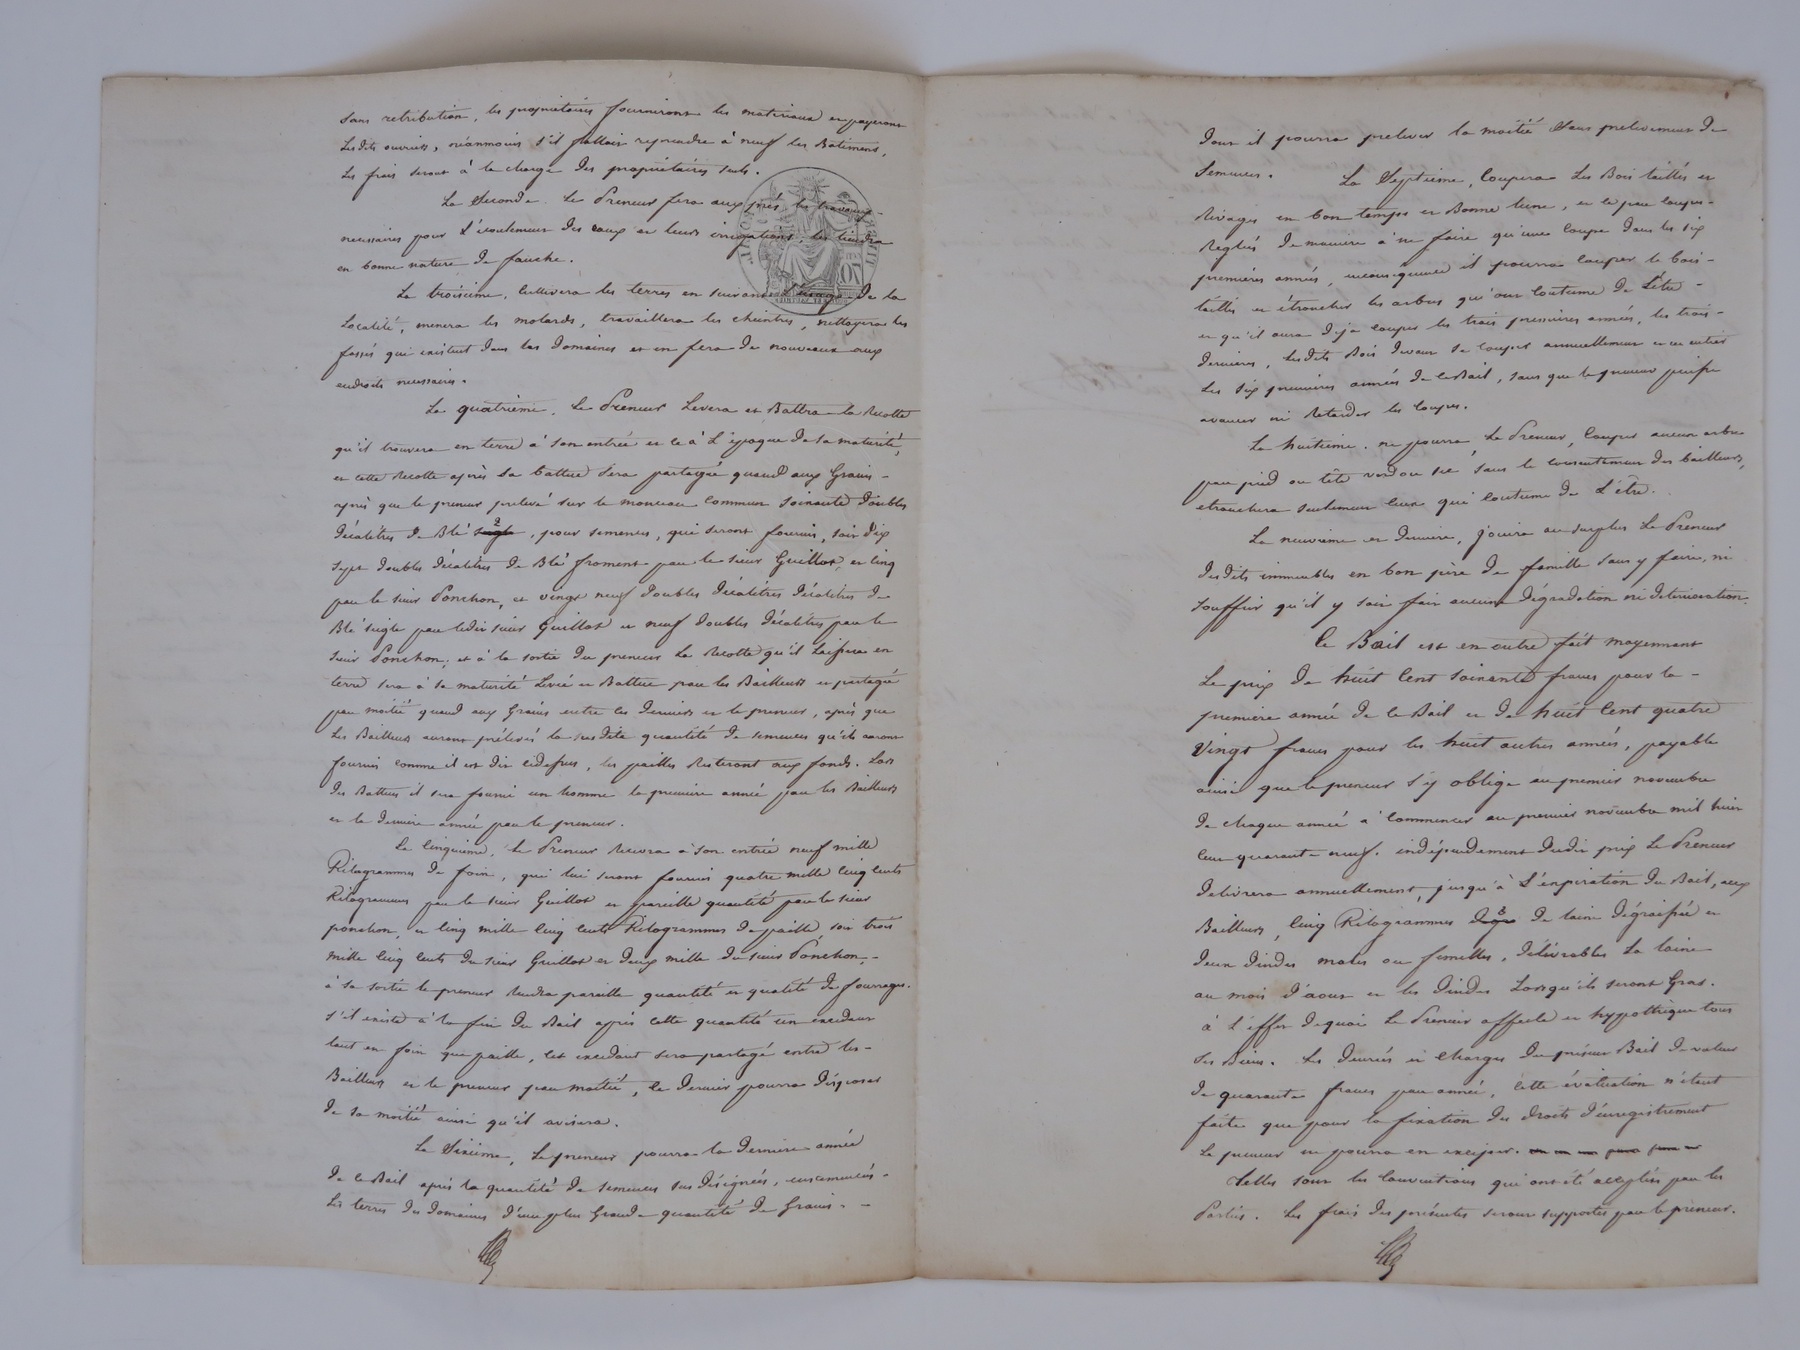 sans retribution, les propriétaires fourniront les matériaux et payeront
Lesdits ouvriers, néanmoins s'il fallait reprendre à neuf les Batiments,
Les frais seront à la charge des propriétaires seuls.
La Seconde. Le Preneur fera aux prés les travaux
necessaires pour L'écoulement des eaux et leurs irrigations, les tiendra
en bonne nature de fauche.
La troisième, Cultivera les terres en suivant l'usage de La
Localité, menera les molards, travaillera les cheintres, nettoyera les
fossés qui existent dans les domaines et en fera de nouveaux aux
endroits necessaires.
La quatrième. Le Preneur Levera et Battra la Recolte
qu'il trouvera en terre à son entrée et ce à L'époque de sa maturité,
et cette Recolte après sa batture sera partagée quand aux Grains
après que le preneur prelevé sur le monceau commun soixante doubles
décalitres de Blé seigle, pour semences, qui seront fournis, soit dix
sept doubles décalitres de Blé froment par le sieur Guillot, et cinq
par le sieur Ponchon, et vingt neuf doubles décalitres décalitres de
Blé seigle par ledit sieur Guillot et neuf doubles décalitres par le
sieur Ponchon; et à la sortie du preneur La Recolte qu'il Laissera en
terre sera à sa maturité Levée et Battue par les Bailleurs et partagée
par moitié quand aux Grains entre ces derniers et le preneur, après que
Les Bailleurs auront prélevés la susdite quantité de semences qu'ils auront
fournis comme il est dit cidessus, les pailles Resteront aux fonds. Lors
des Battures il sera fourni un homme la premiere année par les Bailleurs
et la derniere année par le preneur.
La Cinquième. Le Preneur Recevra à son entrée neuf mille
Kilogrammes de foin, qui lui seront fournis quatre mille Cinq Cents
Kilogrammes par le sieur Guillot et pareille quantité par le sieur
ponchon, et Cinq mille Cinq Cents Kilogrammes de paille, soit trois
mille Cinq Cents du sieur Guillot et deux mille du sieur Ponchon,
à sa sortie le preneur Rendra pareille quantité et qualité de fourrages.
S'il existe à la fin du Bail après cette quantité un excédant
tant en foin que paille, Cet excédant sera partagé entre les
Bailleurs et le preneur par moitié, Ce dernier pourra disposer
de sa moitié ainsi qu'il avisera.
La Sixième, Le preneur pourra la derniere année
de ce Bail après la quantité de semences sus désignées, ensemencer
Les terres des domaines d'une plus Grande quantité de Grains.
dont il pourra prelever la moitié Sans prelevement de
Semences. La Septieme, Coupera Les Bois taillés et
Rivages en bon temps et Bonne lune, en ce par Coupes
Reglées de maniere à ne faire qu'une Coupe dans les six
premieres années, en consequence il pourra Couper le bois
taillis et étroncher les arbres qui ont Coutume de L'être
et qu'il aura deja Coupés les trois premieres années, les trois
dernieres, Lesdits Bois devant se Couper annuellement et en entier
Les six premieres années de ce Bail, sans que le preneur puisse
avancer ni Retarder les Coupes.
La huitième. ne pourra, Le Preneur, Couper aucun arbre
par pied ou tête verd ou sec sans le consentement des bailleurs,
etronchera seulement Ceux qui Coutume de L'être.
La neuvième et derniere, Jouira au surplus Le Preneur
desdits immeubles en bon père de famille sans y faire, ni
souffrir qu'il y soit fait aucune dégradation ni deterioration.
Ce Bail est en outre fait moyennant
Le prix de huit Cent soixante francs pour la
premiere année de ce Bail et de huit Cent quatre
Vingt francs pour les huit autres années, payable
ainsi que le preneur s'y oblige au premier novembre
de chaque année à Commencer au premier novembre mil huit
Cent quarante neuf. indépendement dudit prix Le Preneur
delivrera annuellement, jusqu'à L'expiration du Bail, aux
Bailleurs, Cinq Kilogrammes de laine dégraissée et
deux dindes males ou femelles, délivrables La laine
au mois d'aout et les dindes Lorsqu'ils seront Gras.
à L'effet de quoi Le Preneur affecte et hypothèque tous
ses Biens. Les denrées et Charges du présent Bail de valeur
de quarante francs par année, Cette évaluation n'étant
faite que pour la fixation des droits d'enregistrement
Le preneur ne pourra en exciper.
Telles sont les Conventions qui ont été acceptées par les
Parties. Les frais des présentes seront supportés par le preneur.